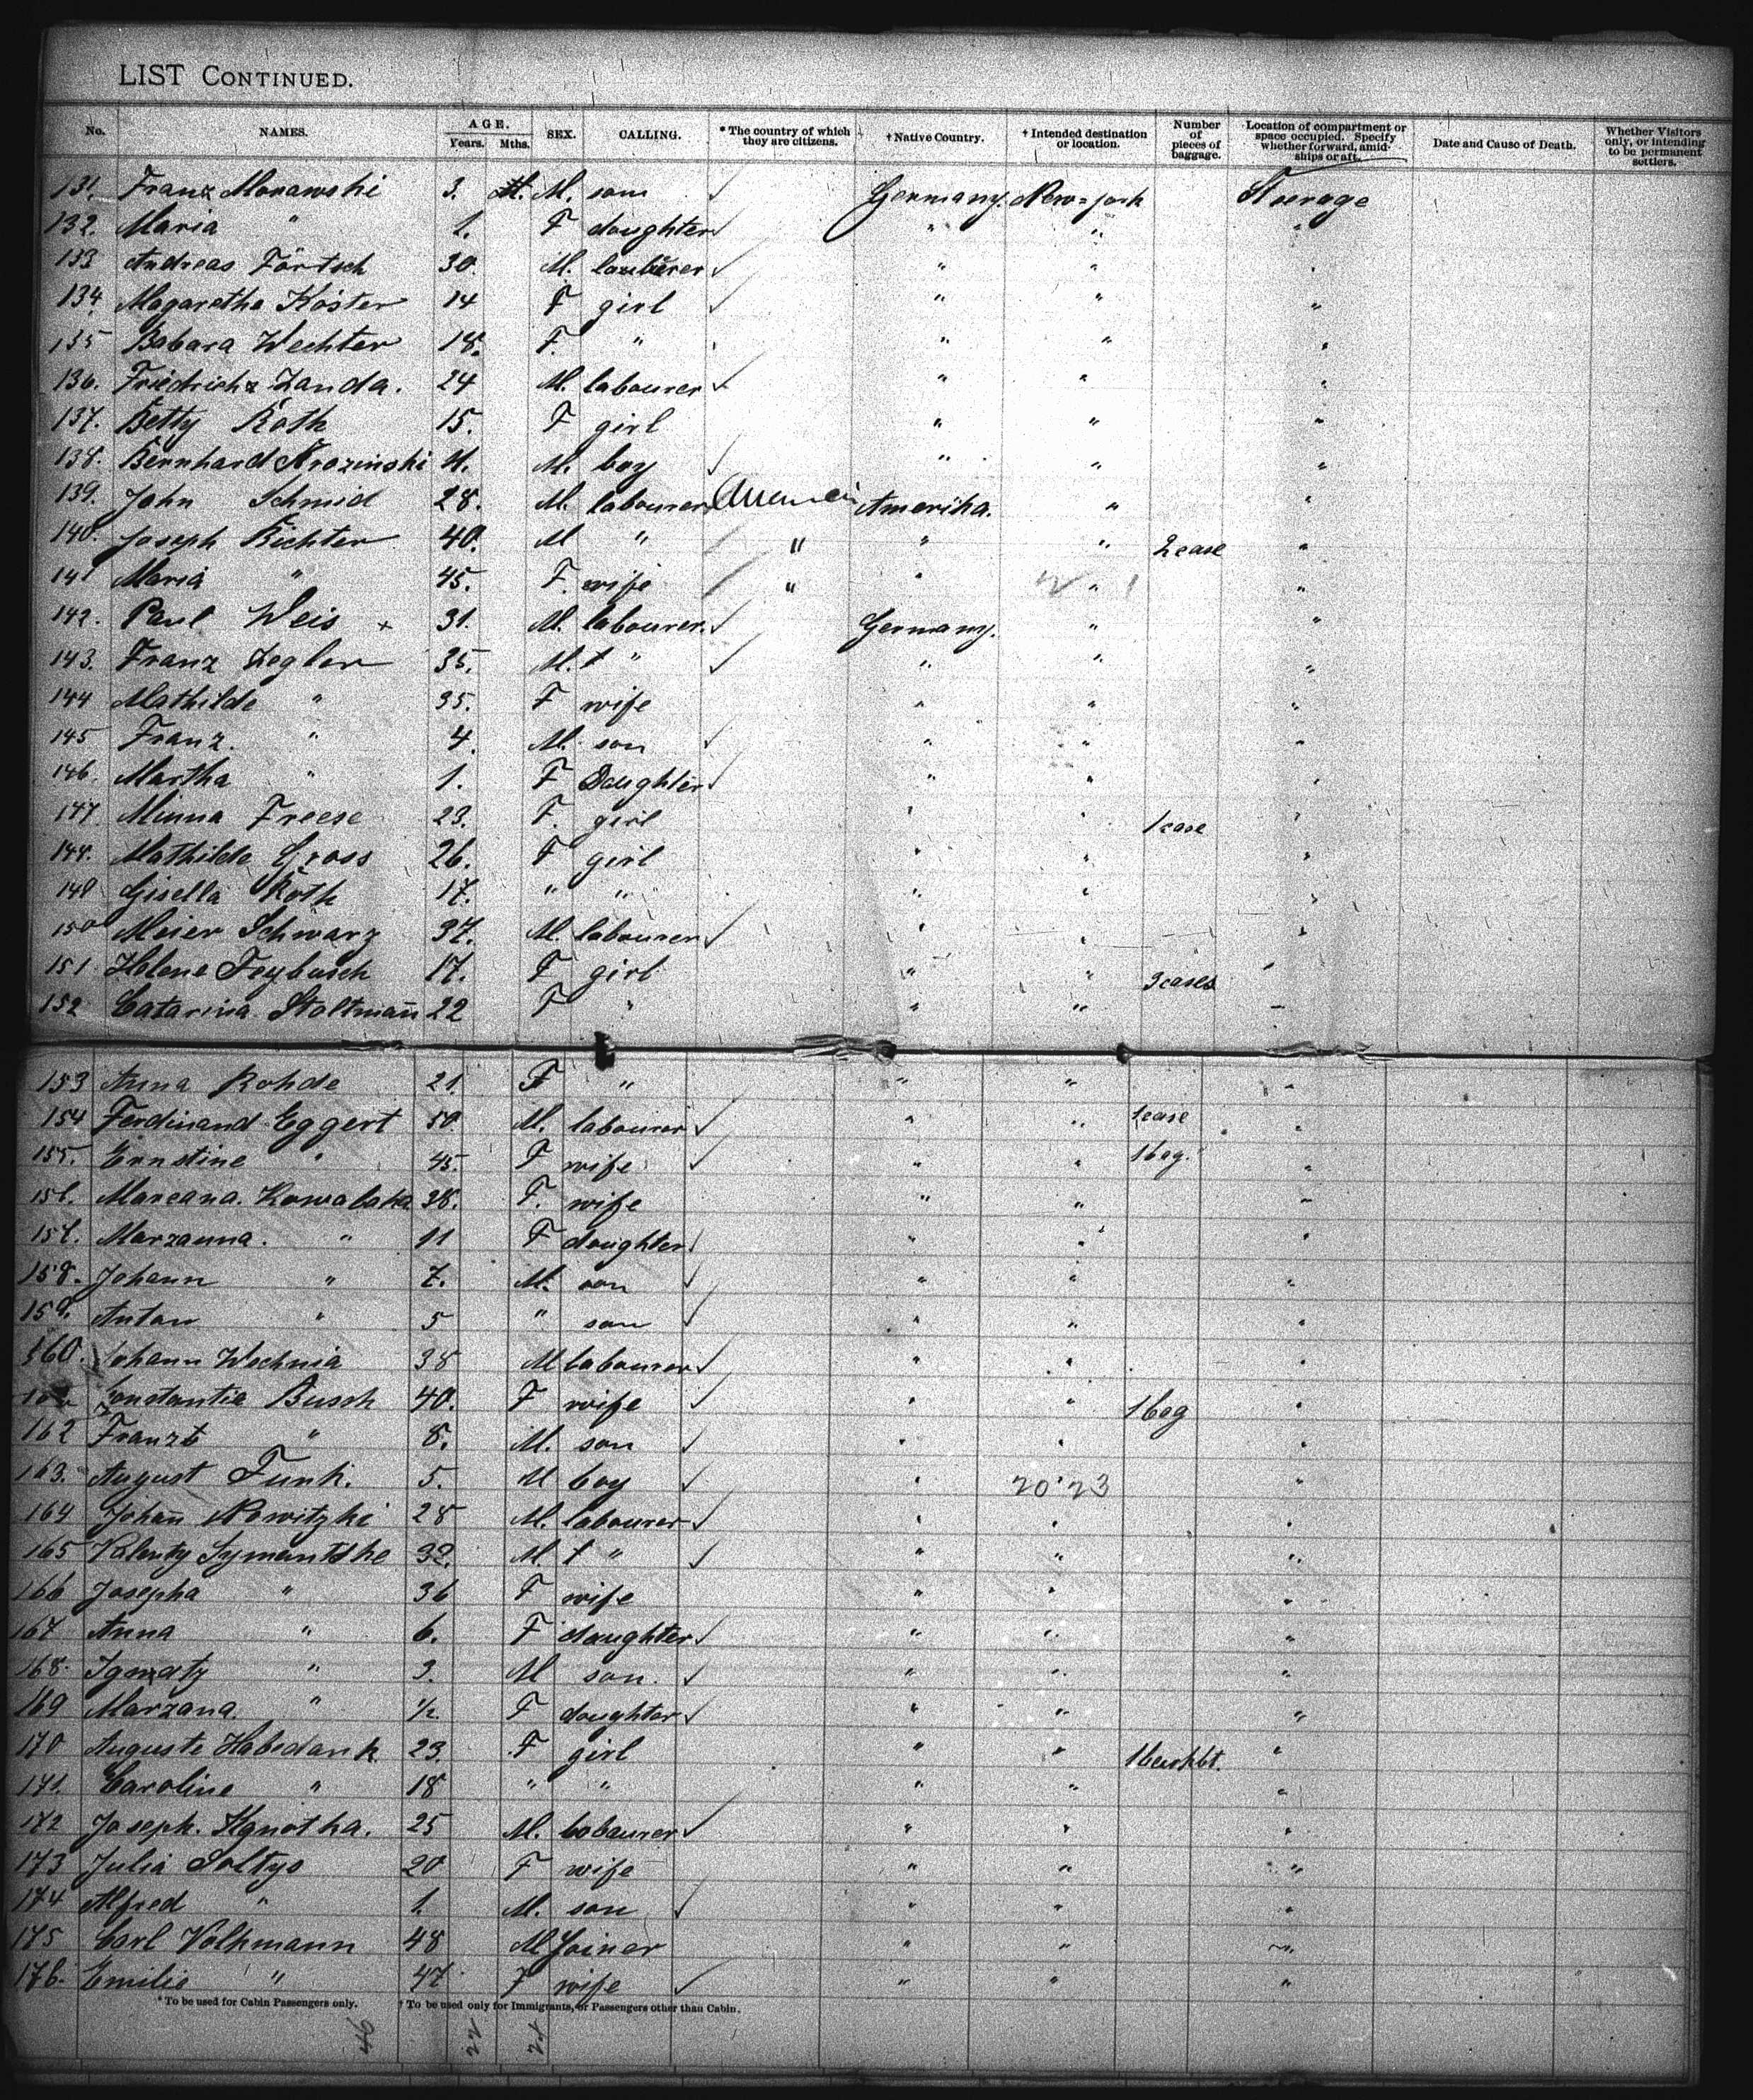 LIST CONTINUED.
No. NAMES. AGE. Years. Mths. SEX. CALLING. * The country of which they are citizens. † Native Country. † Intended destination or location. Number of pieces of baggage. Location of compartment or space occupied. Specify whether forward, amidships or aft. Date and Cause of Death. Whether Visitors only, or intending to be permanent settlers.
131. Franz Morawski 3. M. son ✓ Germany. New=york Steerage
132. Maria " 1. F daughter ✓ " " "
133 Andreas Förtsch 30. M. labourer ✓ " " "
134. Magaretha Köster 14 F girl ✓ " " "
135 Babara Wechter 18. F. " " " "
136. Friedrich Zanda. 24 M. labourer ✓ " " "
137. Betty Roth 15. F girl " " "
138. Bernhard Krozinski 11. M. boy ✓ " " "
139. John Schmid 28. M. labourer Amerika. " "
140. Joseph Richter 40. M " " " " 2 case "
141 Maria " 45. F. wife " " " "
142. Paul Weis + 31. M. labourer. ✓ Germany. " "
143. Franz Zegler 35. M. † " ✓ " " "
144 Mathilde " 35. F wife " " "
145 Franz. " 4. M. son ✓ " " "
146. Martha " 1. F Daughter ✓ " " "
147. Minna Freese 23. F. girl " " 1 case "
148. Mathilde Gross 26. F girl " " "
149 Gisella Roth 17. " " " " "
150 Meier Schwarz 37. M. labourer ✓ " " "
151. Helene Feybusch 17. F girl " " 3 cases "
152 Catarina Stoltmann 22 F " " " "
153 Anna Rohde 21. F " " " "
154 Ferdinand Eggert 50 M. labourer ✓ " " 1 case "
155. Ernstine " 45. F wife ✓ " " 1 bag. "
156. Mareana. Kowalska 38. F. wife " " "
157. Marzanna. " 11 F daughter ✓ " " "
158. Johann " 7. M. son ✓ " " "
159. Anton " 5 " son ✓ " " "
160. Johann Wechnia 38 M labourer ✓ " " "
Constantia Bussh 40. F wife ✓ " " 1 bag "
162 Franz " 8. M. son ✓ " " "
163. August Funk. 5. M boy ✓ " 20'23 "
164 Johann Nowitzki 28 M. labourer ✓ " " "
165 Valenty Symentske 32. M. † " ✓ " " "
166 Josepha " 36 F wife " " "
167 Anna " 6. F daughter ✓ " " "
168. Ignatz " 3. M son. ✓ " " "
169 Marzana. " ½. F daughter ✓ " " "
170 Auguste Habedank 23. F girl " " "
171. Caroline " 18 " " " " "
172 Joseph. 25 M. labourer ✓ " " "
173 Julia Soltys 20 F wife " " "
174 Alfred " 1. M. son ✓ " " "
175 Carl Volkmann 48 M Joiner " " "
176. Emilie " 47 F wife ✓ " " "
* To be used for Cabin Passengers only. † To be used only for Immigrants, or Passengers other than Cabin.